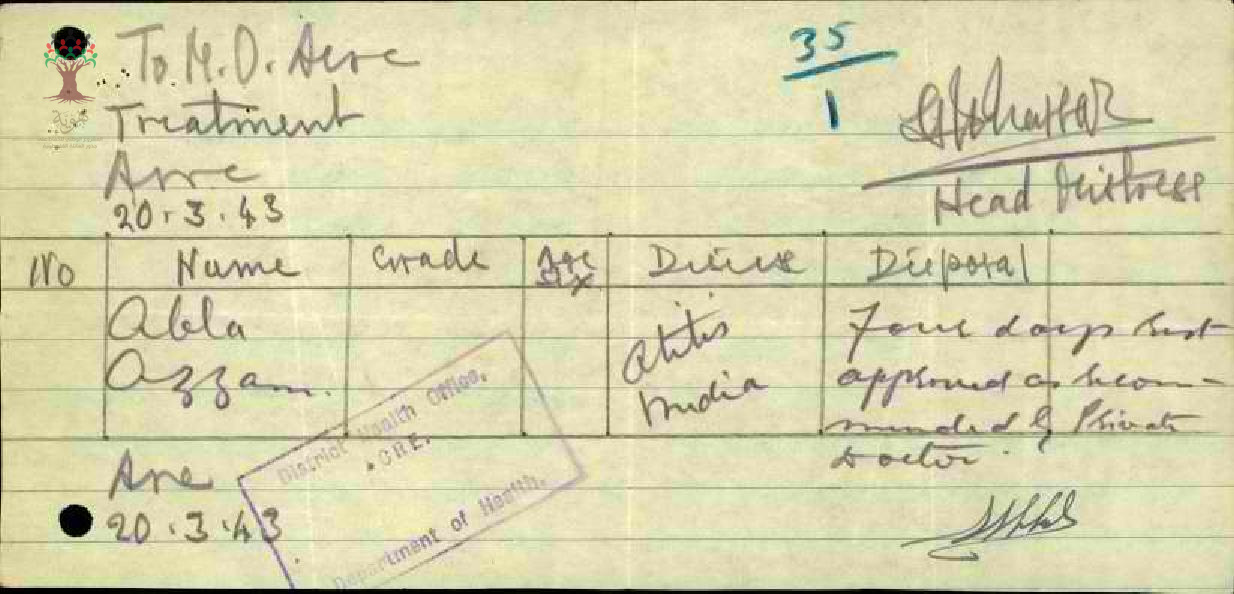 To M.O. Acre
35
1
Treatment
Acre
Head Mistress
20.3.43
No Name Grade Age Sex Disease Disposal
Abla
Azzam.
Otitis
Media
Four days rest
approved as recom-
mended by Private
Doctor.
District Health Office,
ACRE.
Department of Health.
Acre
20.3.43